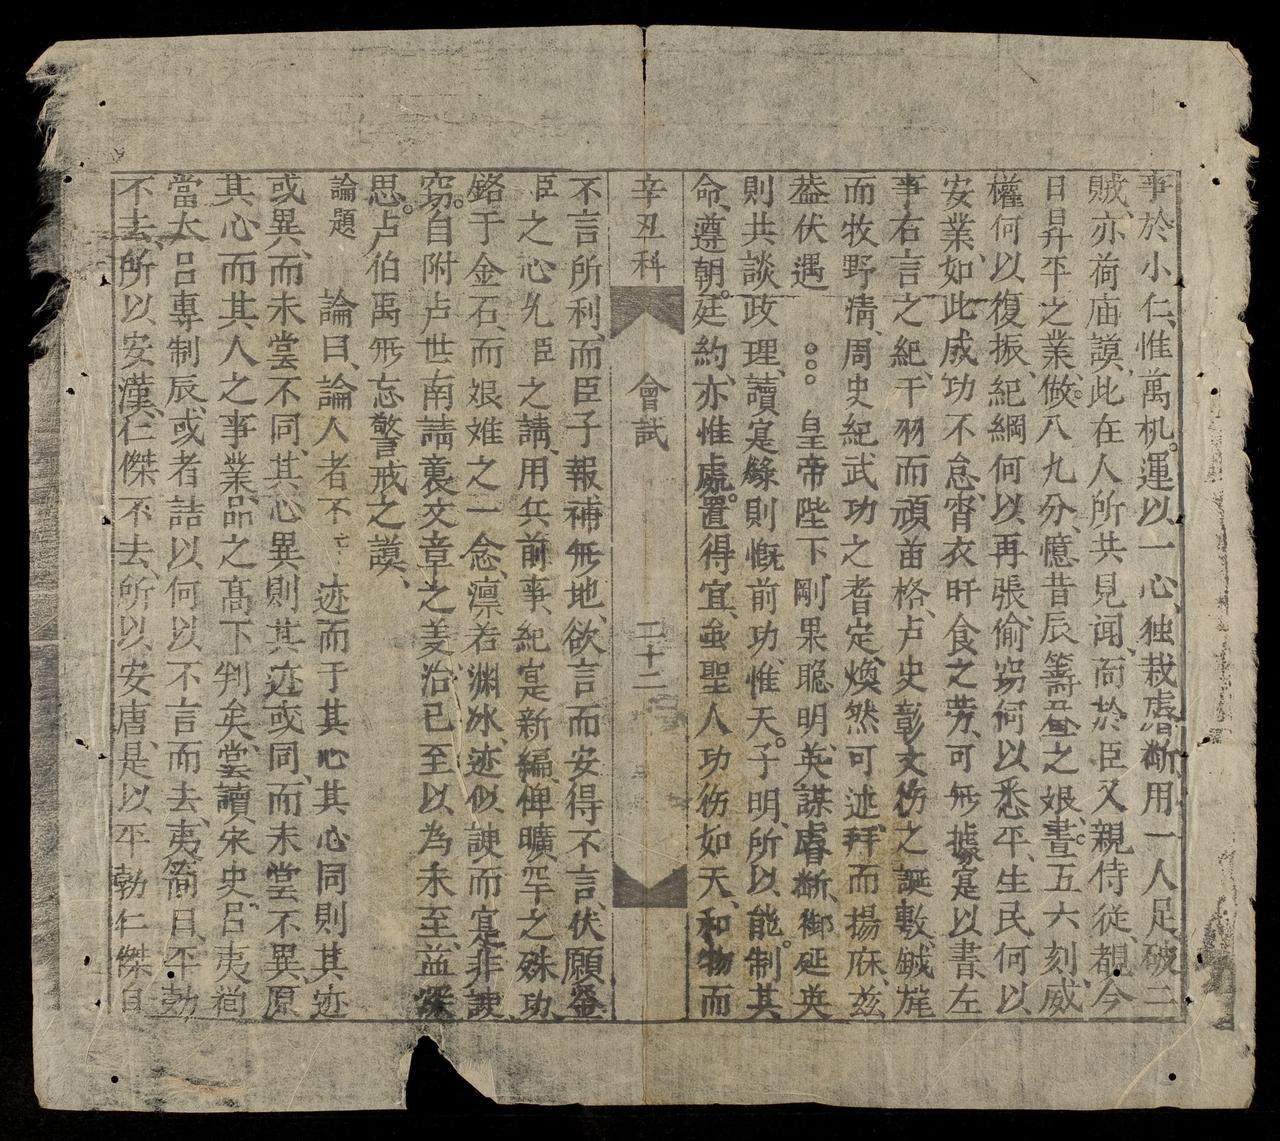 事於小仁惟萬机。運以一心、独裁睿断用一人足破二
賊、亦荷庙謨、此在人所共見闻、而於臣又親侍從、覩今
日昇平之業、做。八九分、憶昔辰籌畳之娘、晝。五六刻、威
權何以復振、紀綱何以再張、偷窃何以悉平、生民何以
安業、如此成功不怠、宵衣旰食之劳、可𣃼據寔以書、左
事右言之紀、干羽而頑苗格、卢史彰文伤之誕敷、鉞旄
而牧野清、周史紀武功之耆定、煥然可述、拜而揚庥、兹
葢伏遇 。。。 皇帝陛下、剛果聪明、英謀睿断、御延英
則共談政理、讀寔錄則慨前功、惟天。子明、所以能。制其
命、遵朝。廷約、亦惟處。置得宜、虽聖人功伤如天、和物而
辛丑科 會試 二十二
不言所利、而臣子報補𣃼地、欲言而安得不言、伏願益
臣之心、允臣之請、用兵前事、紀寔新編、俾曠罕之殊功、
銘于金石、而娘难之一念、凛若渊冰、迹似諛而寔非諛、
窃。自附卢世南請裒文章之美、治已至以為未至、益深
思。卢伯禹𣃼忘警戒之謨、
論題 論曰、論人者不 迹而于其心、其心同則其迹
或異、而未甞不同、其心異則其迹或同、而未甞不異、原
其心而其人之事業、品之高下判矣、甞讀宋史、吕夷簡
當太吕專制辰、或者詰以何以不言而去、夷簡曰、平勃
不去、所以安漢、仁傑不去、所以安唐、是以平勃仁傑自